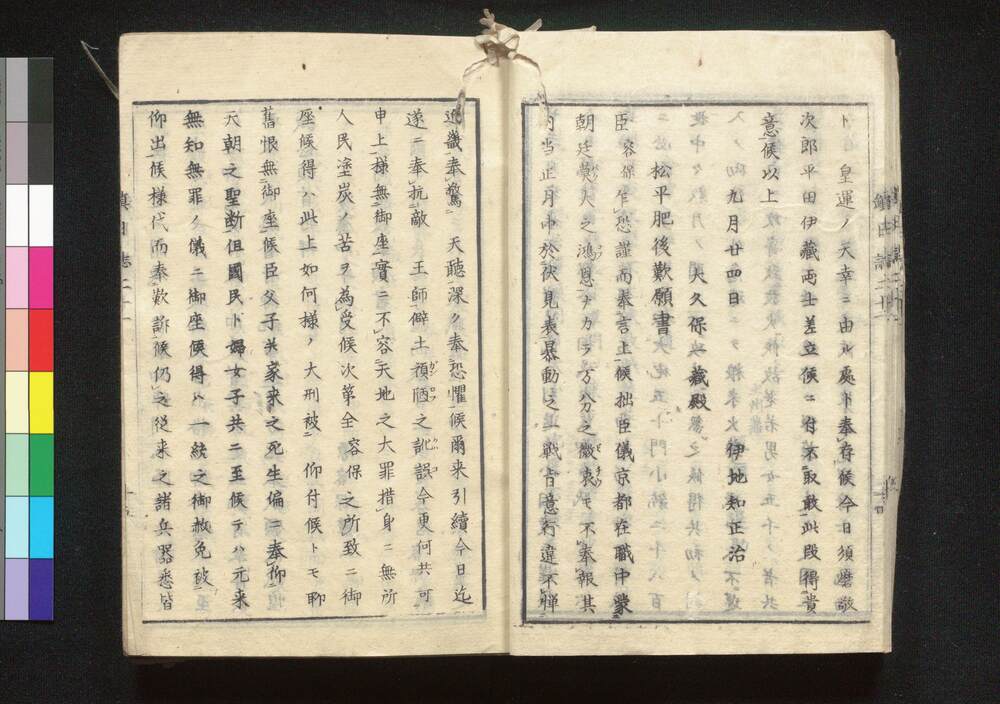 ト　皇運ノ天幸ニ由ル處ト奉存候今日須磨敬
次郎平田伊藏両士差立候ニ付不取敢此段得貴
意候以上
九月廿四日　伊地知正治
大久保一藏殿
松平肥後歎願書
臣容保乍恐謹而奉言上候拙臣儀京都在職中蒙
朝廷莫大之鴻恩ナカラ万分之微衷モ不奉報其
内当正月中於伏見表暴動之一戦旨意行違不憚
近畿奉驚　天聽深ク奉恐懼候爾来引續今日迄
遂ニ奉抗敵　王師僻土頑陋之訛誤今更何共可
申上様無御座實ニ不容天地之大罪措身ニ無所
人民塗炭ノ苦ヲ為受候次第全容保之所致ニ御
座候得ハ此上如何様ノ大刑被　仰付候トモ聊
舊恨無御座候臣父子并家来之死生偏ニ奉仰
天朝之聖断但國民ト婦女子共ニ至候テハ元来
無知無罪ノ儀ニ御座候得ハ一統之御赦免被
仰出候様代而奉歎訴候仍之従来之諸兵器悉皆